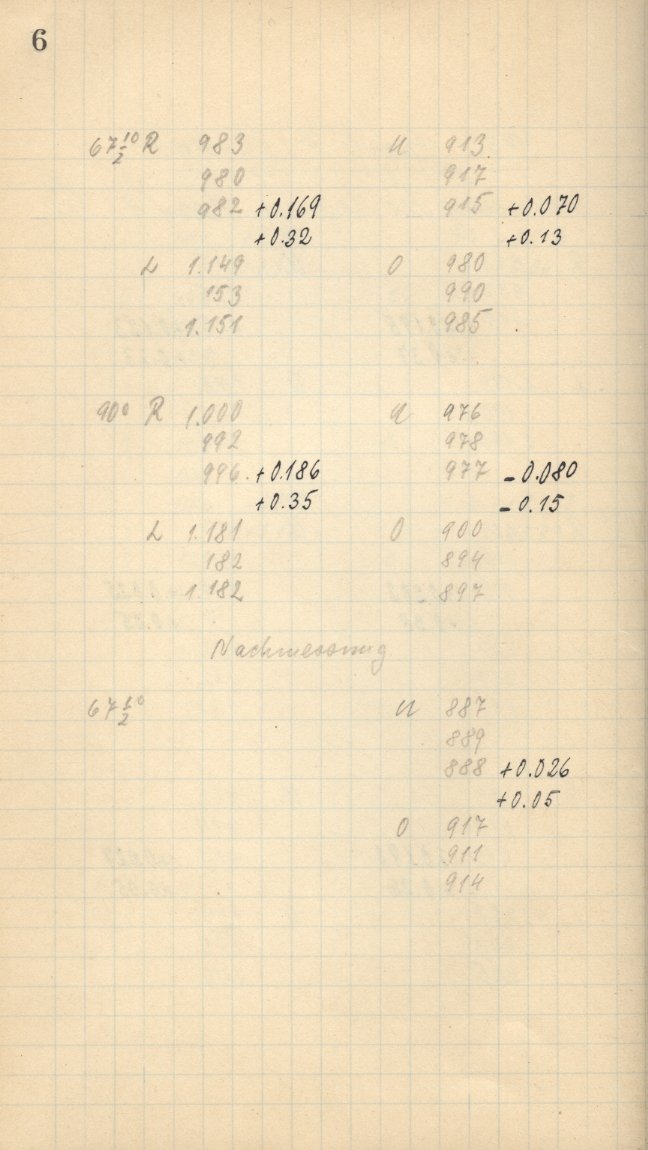 6
67½° R 983 U 913
980 917
982 +0.169 915 +0.070
+0.32 +0.13
L 1.149 O 980
153 990
1.151 985
90° R 1.000 U 976
992 978
996 +0.186 977 -0.080
+0.35 -0.15
L 1.181 O 900
182 894
1.182 897
Nachmessung
67½° U 887
889
888 +0.026
+0.05
O 917
911
914